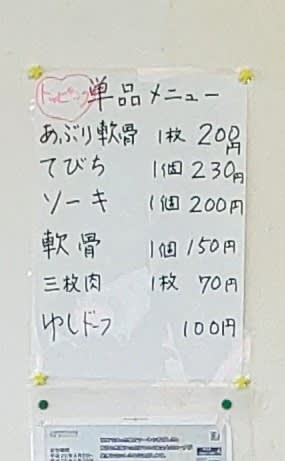 トッピング 単品メニュー
あぶり軟骨 1枚 200円
てびち 1個 230円
ソーキ 1個 200円
軟骨 1個 150円
三枚肉 1枚 70円
ゆしドーフ 100円